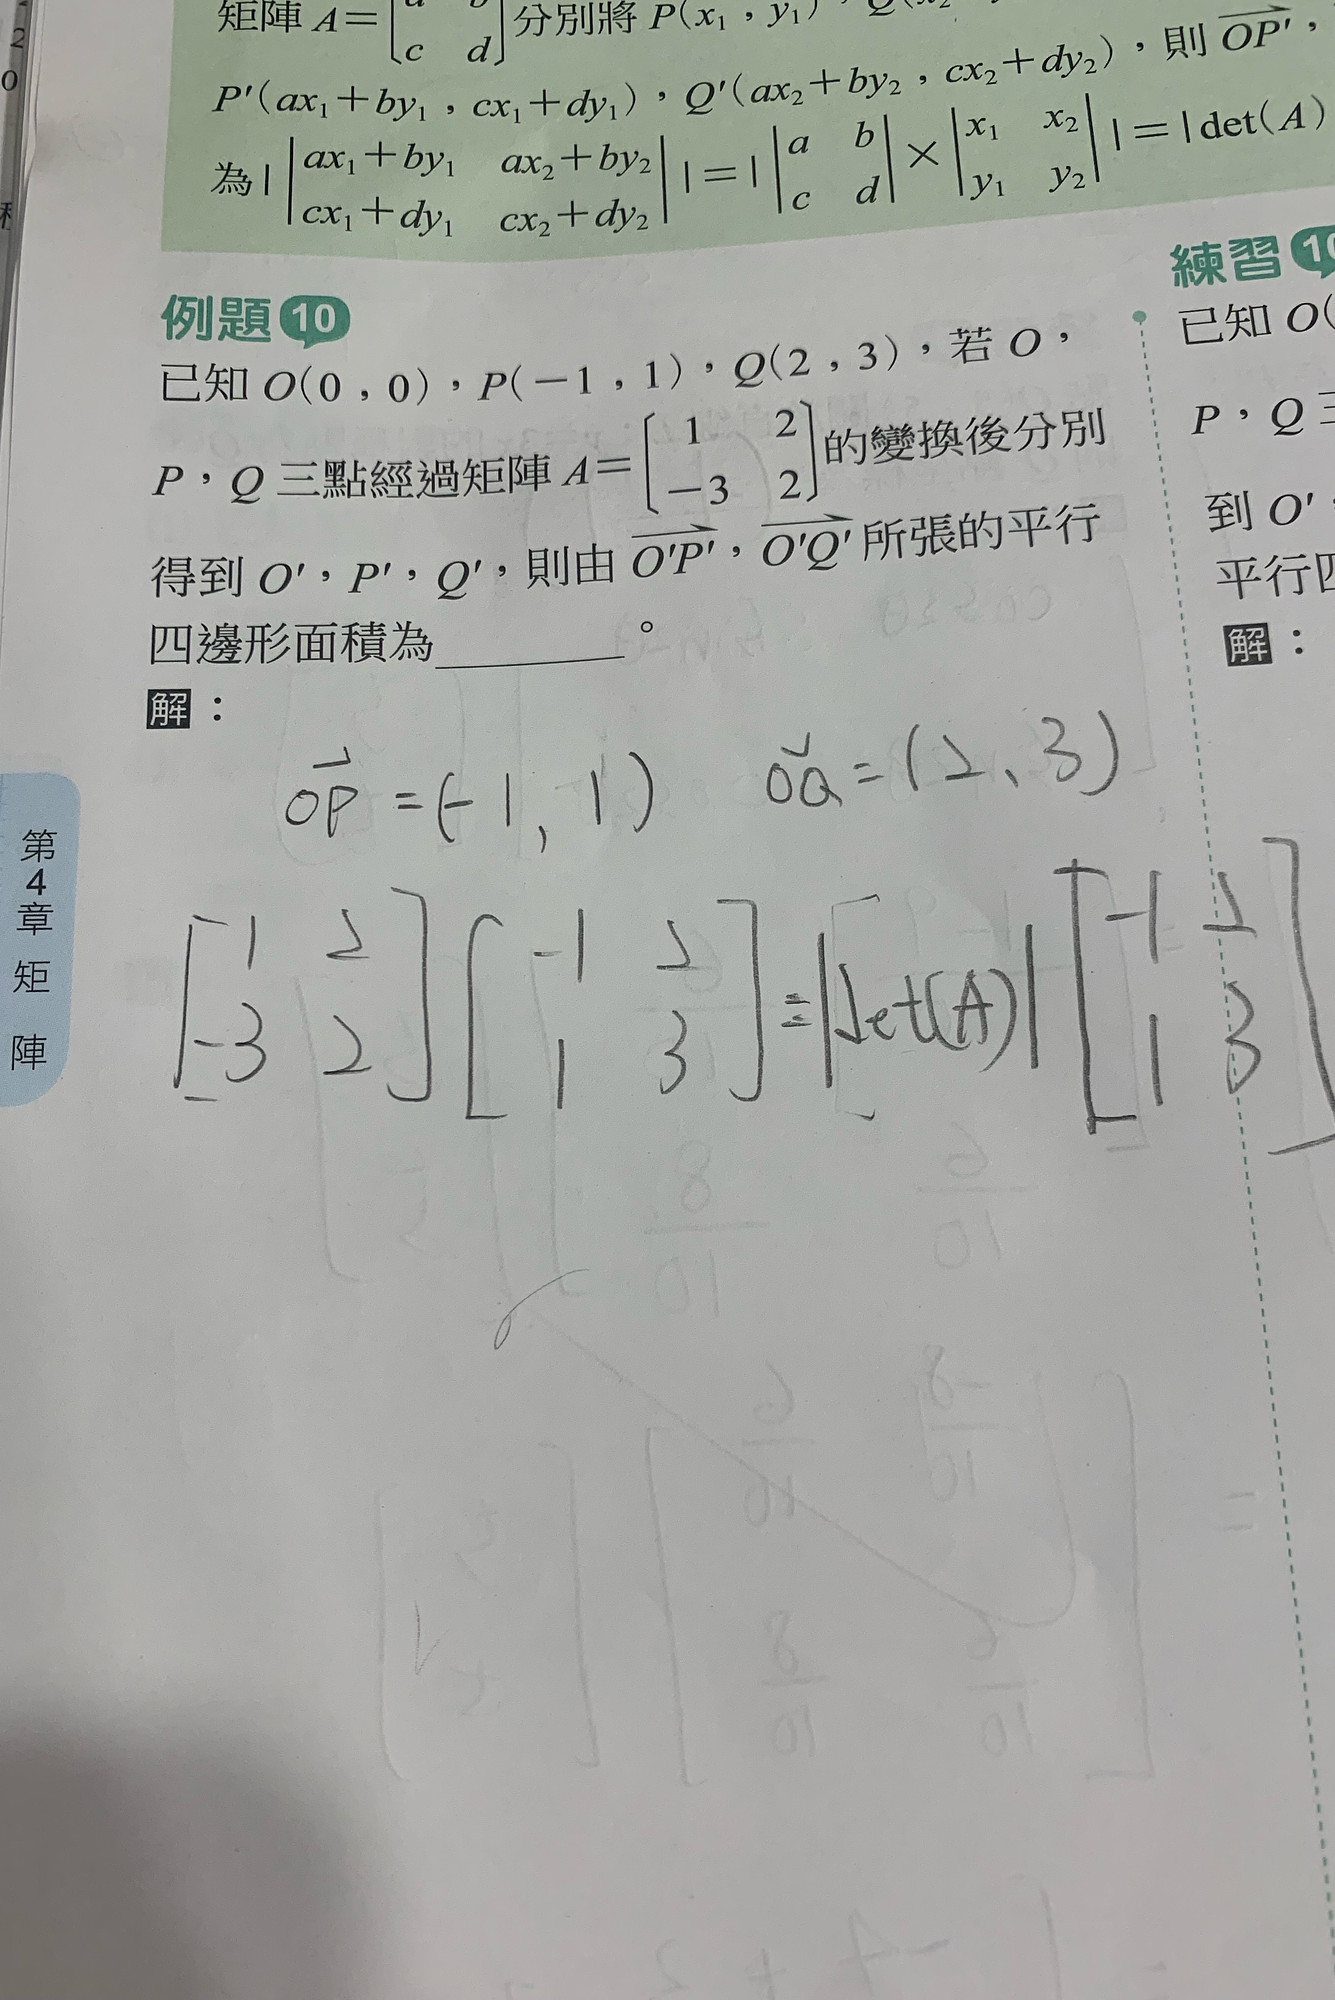 矩陣 A=[a b c d]分別將 P(x₁,y₁),Q(x₂
P′(ax₁+by₁,cx₁+dy₁),Q′(ax₂+by₂,cx₂+dy₂),則 OP′,
為| |ax₁+by₁ ax₂+by₂
cx₁+dy₁ cx₂+dy₂| |=| |a b
c d|×|x₁ x₂
y₁ y₂| |=|det(A)
例題10
已知 O(0,0),P(-1,1),Q(2,3),若 O,
P,Q 三點經過矩陣 A=[1 2
-3 2]的變換後分別
得到 O′,P′,Q′,則由 O′P′,O′Q′所張的平行
四邊形面積為________。
解:
OP=(-1,1) OQ=(2、3)
[1 2
-3 2][-1 2
1 3]=|det(A)|[-1 2
1 3]
練習10
已知 O(
P,Q 三
到 O′
平行四
解:
第4章 矩陣